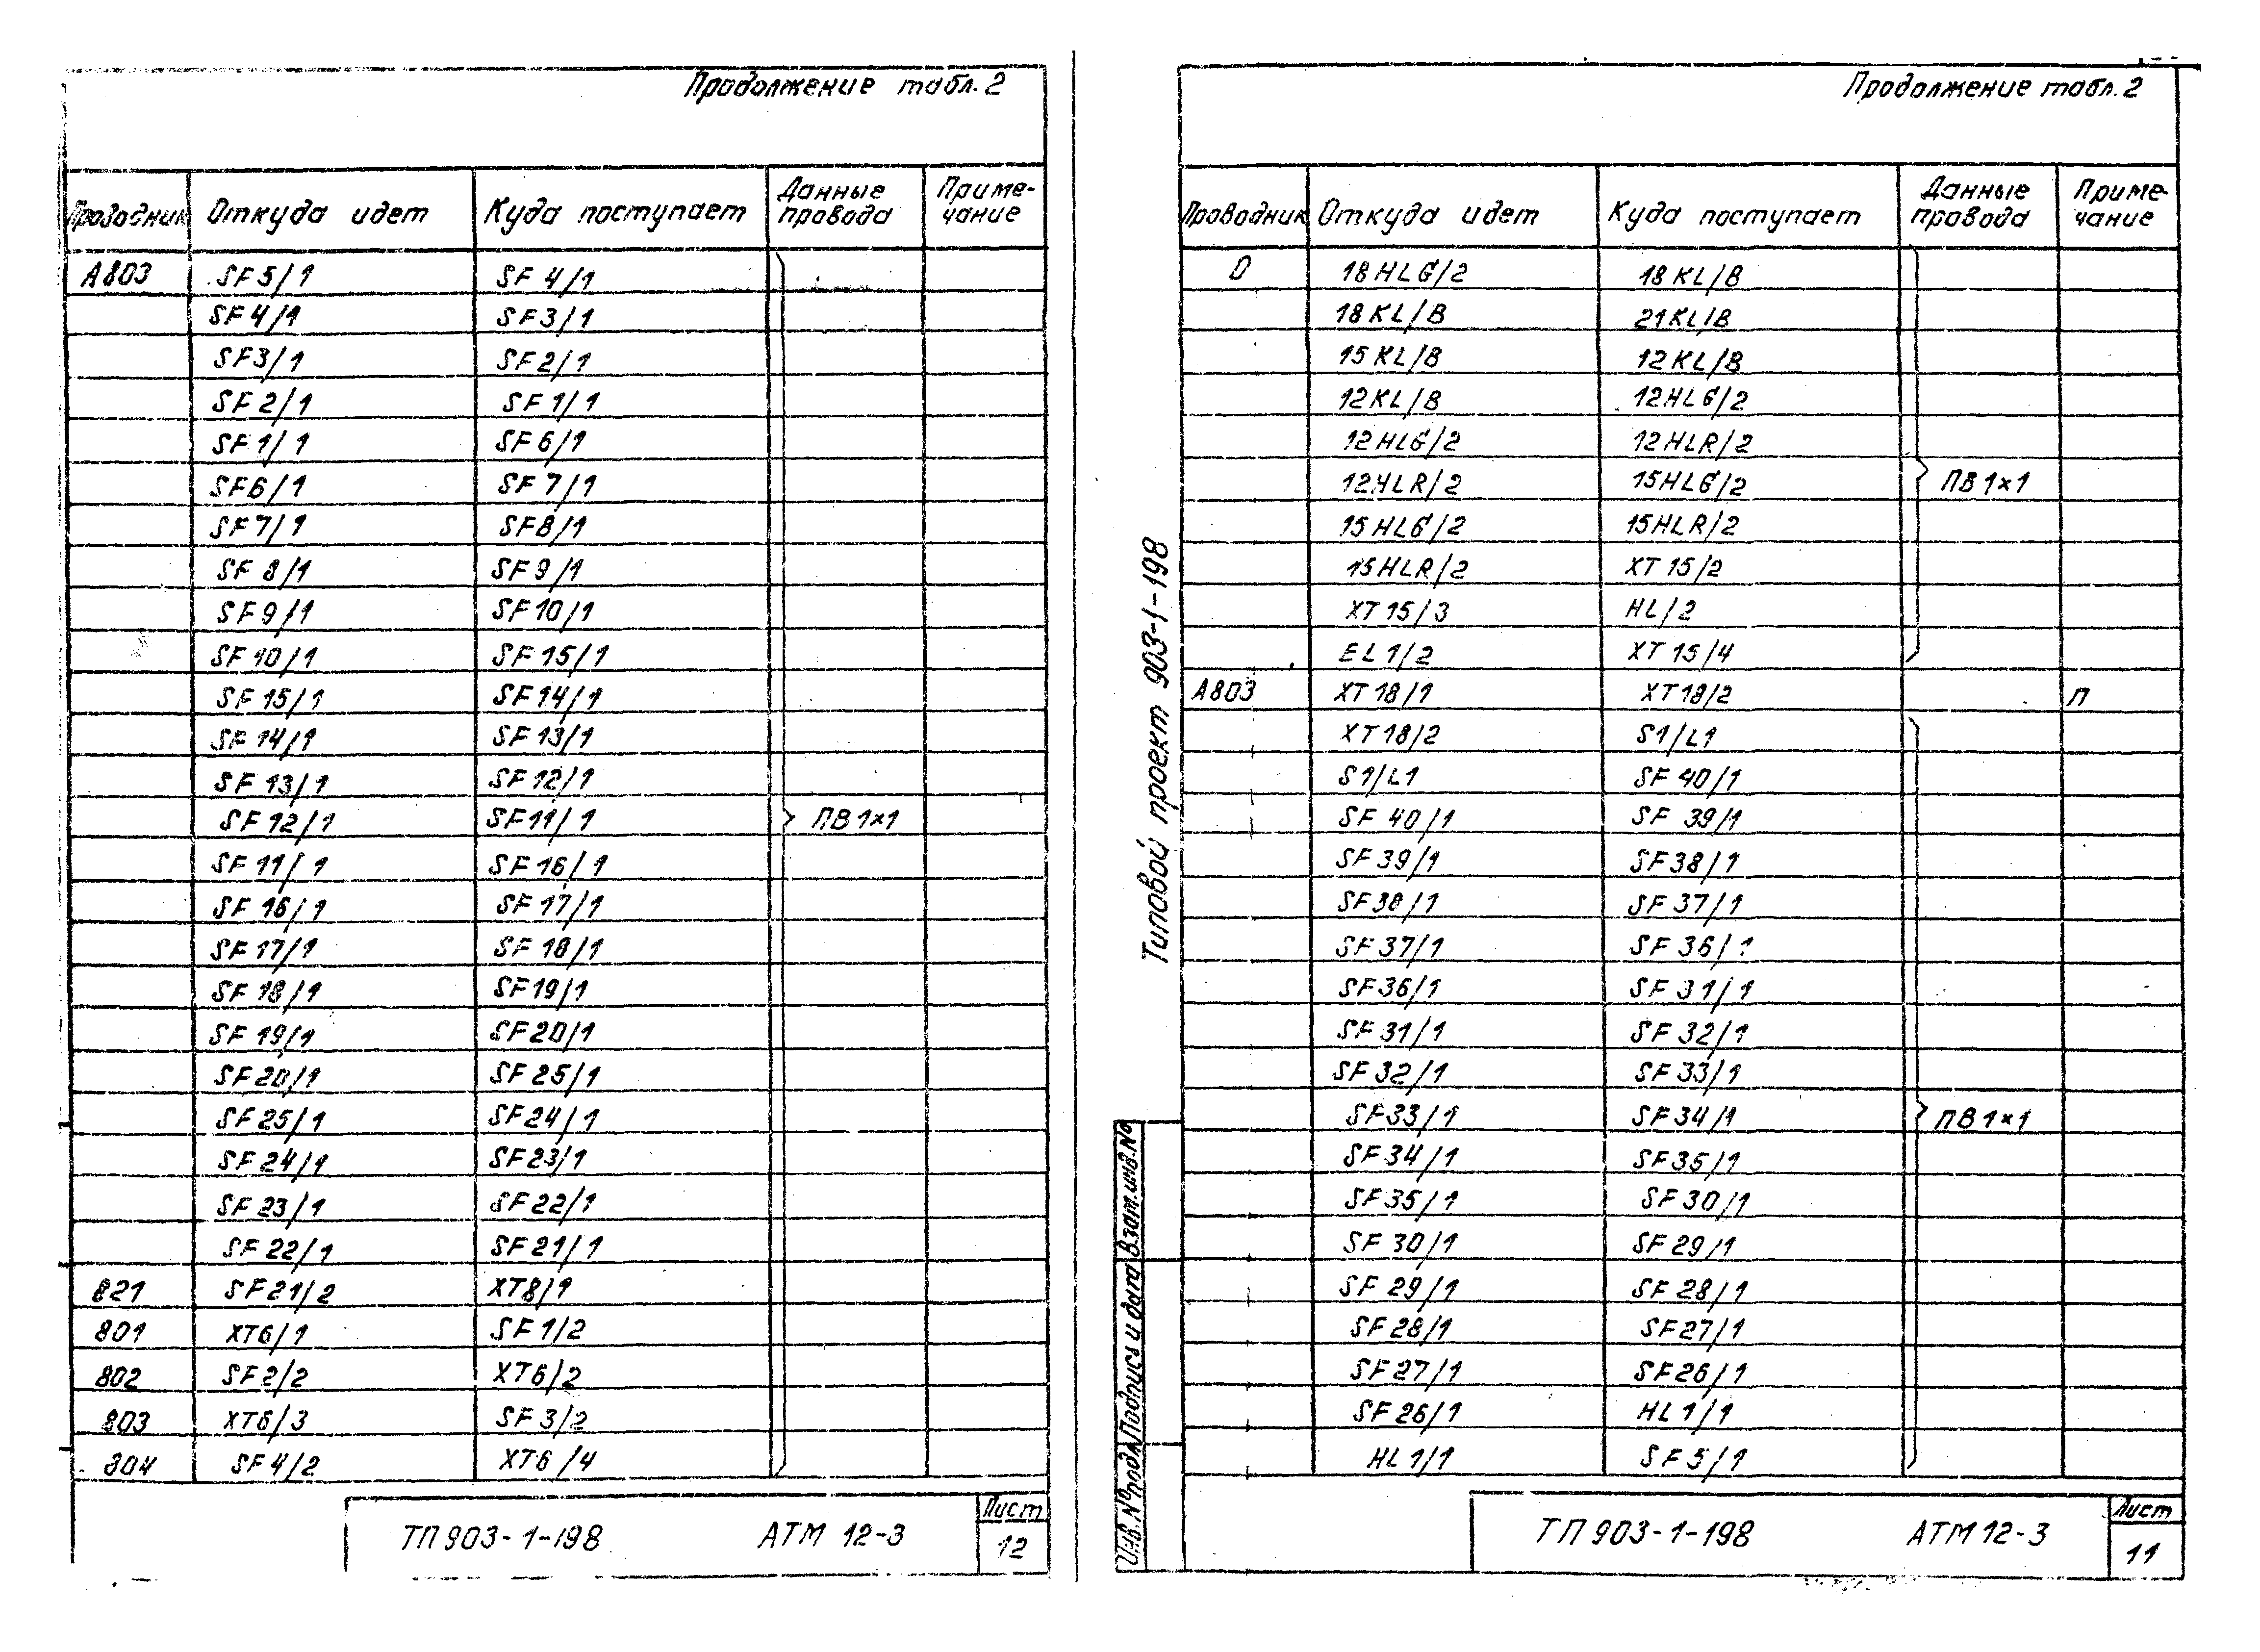 Продолжение табл. 2
Проводник Откуда идет Куда поступает Данные провода Приме-чание
А803 SF5/1 SF4/1
SF4/1 SF3/1
SF3/1 SF2/1
SF2/1 SF1/1
SF1/1 SF6/1
SF6/1 SF7/1
SF7/1 SF8/1
SF8/1 SF9/1
SF9/1 SF10/1
SF10/1 SF15/1
SF15/1 SF14/1
SF14/1 SF13/1
SF13/1 SF12/1
SF12/1 SF11/1 ПВ1×1
SF11/1 SF16/1
SF16/1 SF17/1
SF17/1 SF18/1
SF18/1 SF19/1
SF19/1 SF20/1
SF20/1 SF25/1
SF25/1 SF24/1
SF24/1 SF23/1
SF23/1 SF22/1
SF22/1 SF21/1
821 SF21/2 XT8/1
801 XT6/1 SF1/2
802 SF2/2 XT6/2
803 XT6/3 SF3/2
804 SF4/2 XT6/4
ТП903-1-198 АТМ 12-3 Лист 12
Продолжение табл. 2
Проводник Откуда идет Куда поступает Данные провода Приме-чание
0 18HLG/2 18KL/B
18KL/B 21KL/B
15KL/B 12KL/B
12KL/B 12HLG/2
12HLG/2 12HLR/2
12HLR/2 15HLG/2 ПВ1×1
15HLG/2 15HLR/2
15HLR/2 XT15/2
XT15/3 HL/2
EL1/2 XT15/4
А803 XT18/1 XT18/2 П
XT18/2 S1/L1
S1/L1 SF40/1
SF40/1 SF39/1
SF39/1 SF38/1
SF38/1 SF37/1
SF37/1 SF36/1
SF36/1 SF31/1
SF31/1 SF32/1
SF32/1 SF33/1
SF33/1 SF34/1 ПВ1×1
SF34/1 SF35/1
SF35/1 SF30/1
SF30/1 SF29/1
SF29/1 SF28/1
SF28/1 SF27/1
SF27/1 SF26/1
SF26/1 HL1/1
HL1/1 SF5/1
ТП903-1-198 АТМ12-3 Лист 11
Типовой проект 903-1-198
Инв.№подл. Подпись и дата Взам.инв.№